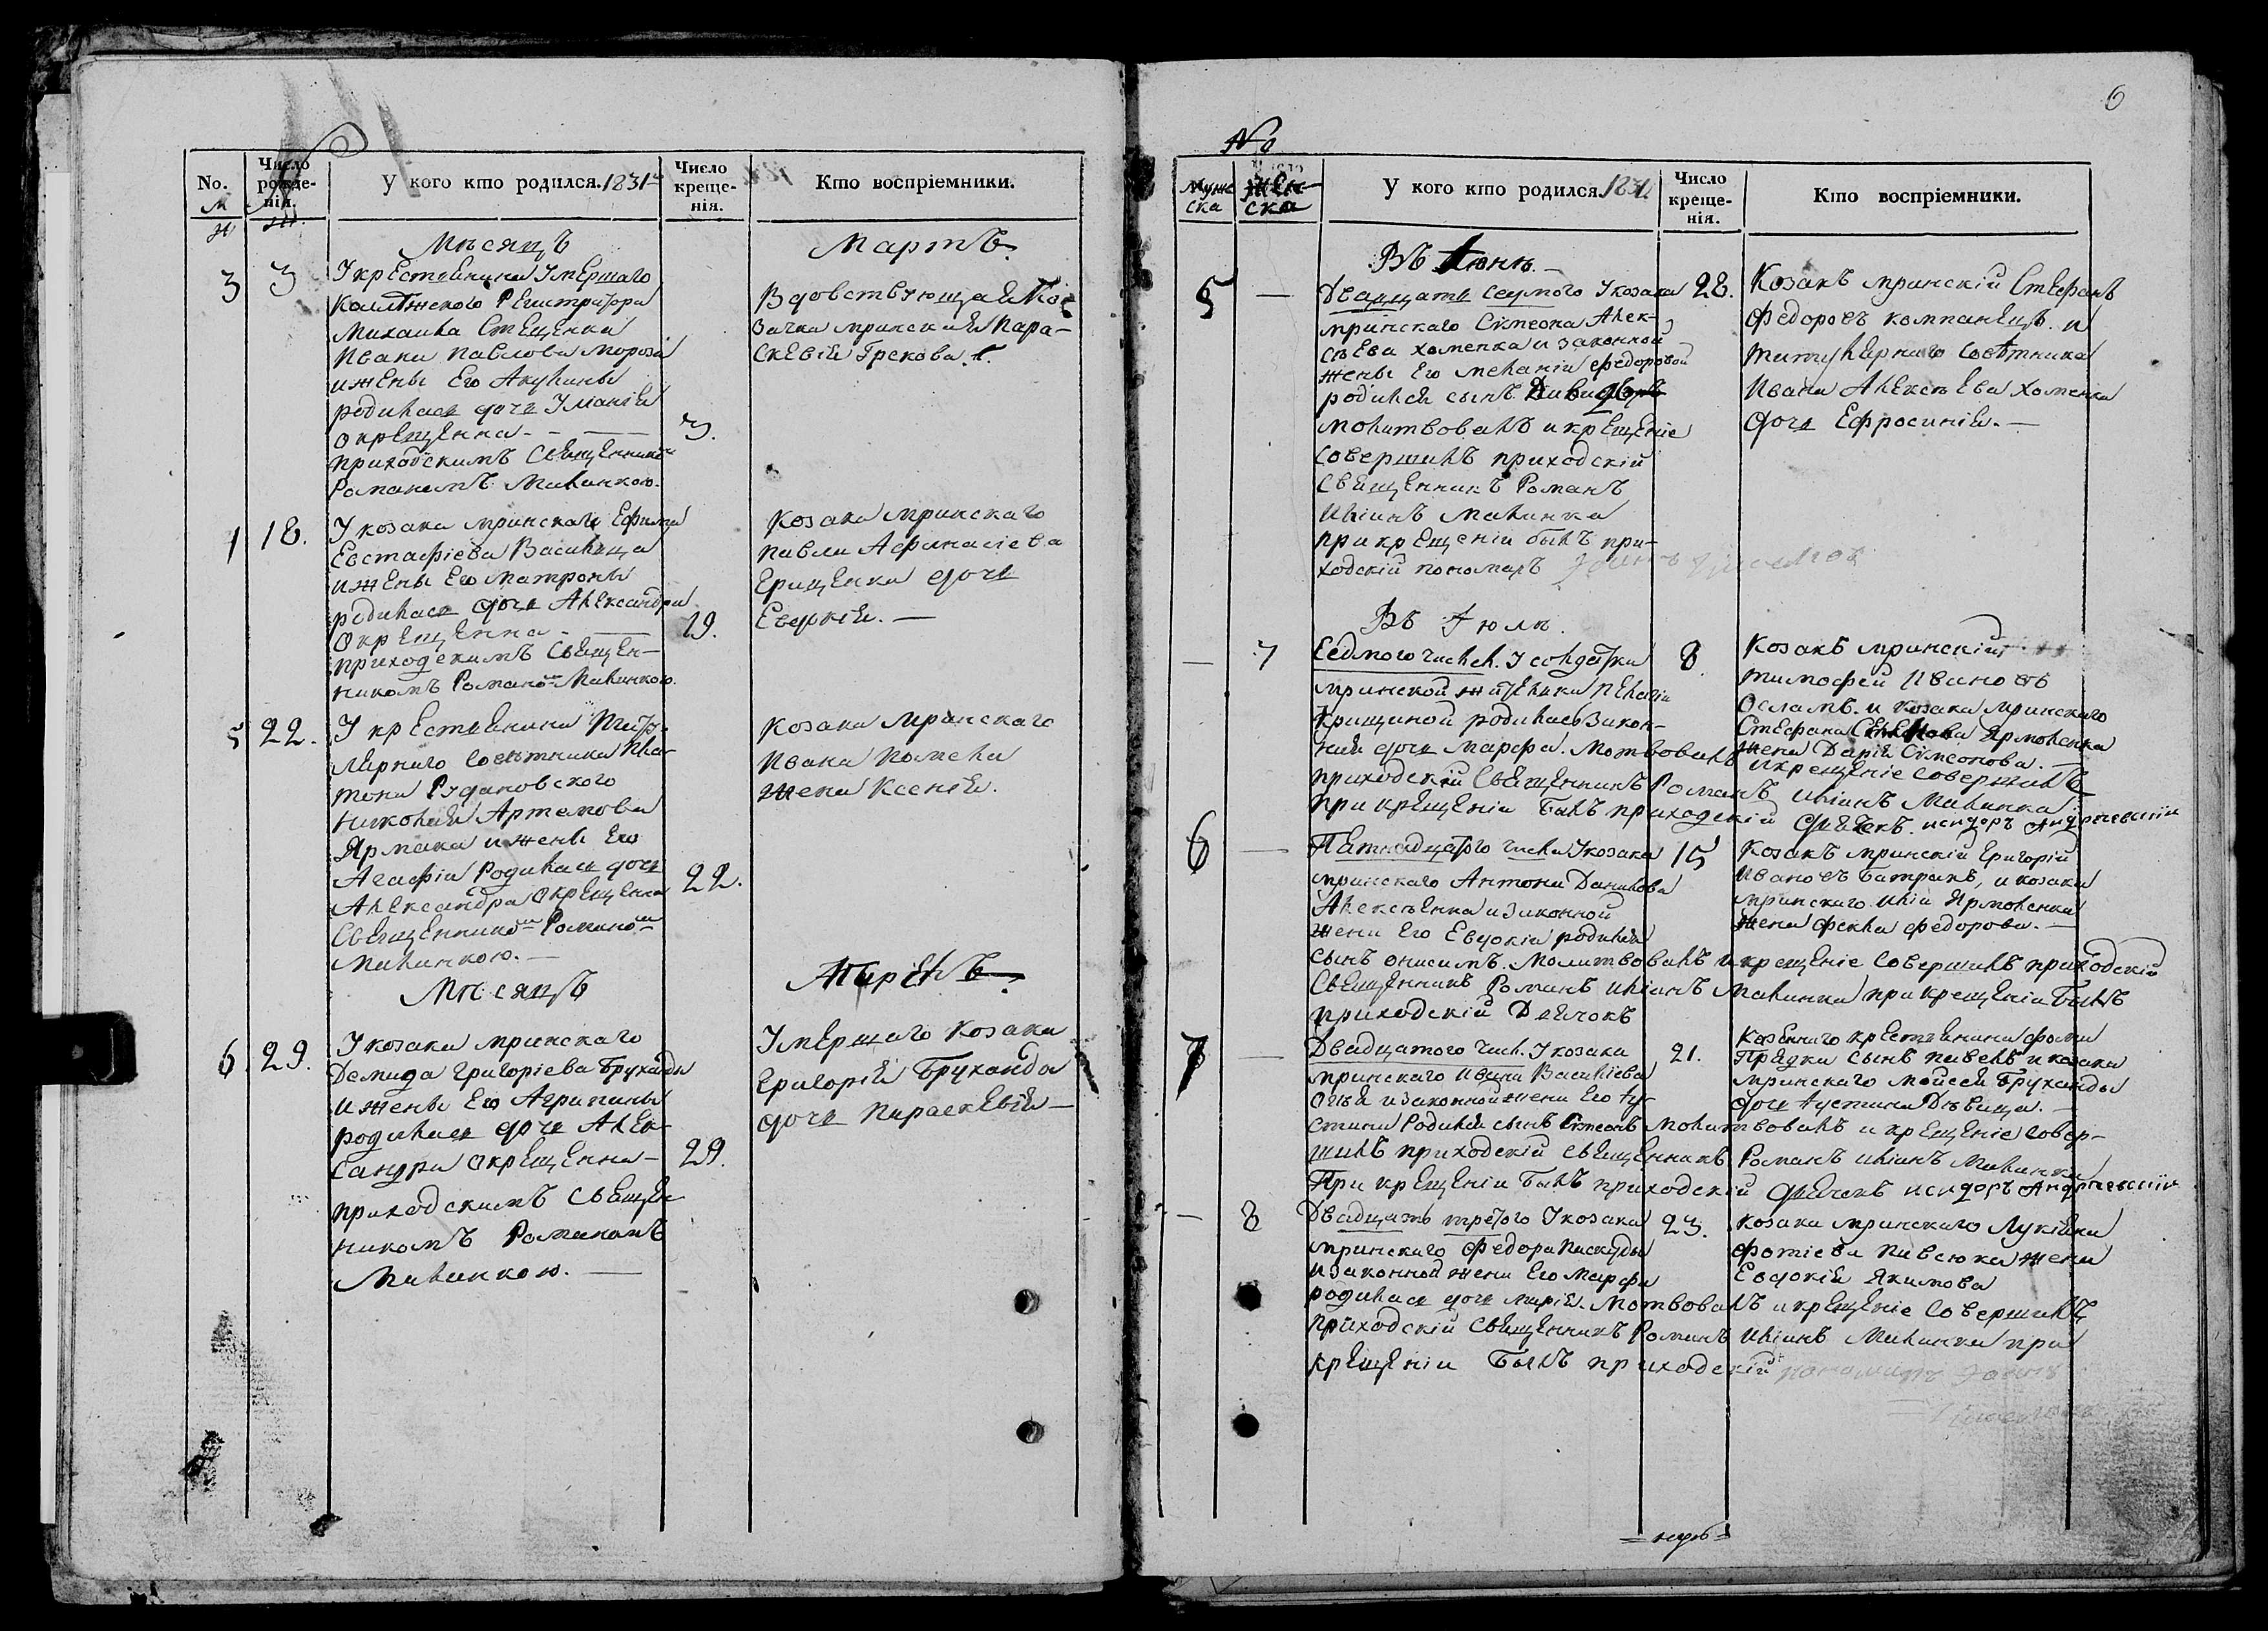 6
No.
м
ж
Число рожде-нія.
У кого кто родился. 1831
Число креще-нія.
Кто воспріемники.
Мѣсяцъ
Мартъ
3
3
У крестьянина умершаго
Колѣжского Регистратора
Михаила Стеценка
Ивана Павлова Мороза
и жены Его Акулины
родилась дочь
окрещенна
приходскимъ Священникомъ
Романомъ Малинкою.
3.
Вдовствующая Ко-
зачка мринская Пара-
скевія Грекова
18.
У козака мринскаго Ефима
Евстафіева Василца
и жены Его Матроны
родилась дочь Александра
окрещенна
приходскимъ Священ-
никомъ Романомъ Малинкою.
19.
Козака мринскаго
Павла Афанасіева
Грищенка дочь
5
22.
У крестьянина Титу-
лярнаго Совѣтника Пла-
тона Рудановского
Николая Артемова
Ярмака и жены Его
Агафіи Родилась дочь
Александра окрещенна
Священникомъ Романомъ
Малинкою.
22.
Козака Мринскаго
Ивана Помела
жена Ксенія.
Мѣсяцъ
Апрѣль
6
29.
У козака мринскаго
Демида Григоріева Бруханды
и жены Его Агрипины
родилась дочь Алек-
сандра окрещенна
приходскимъ Священ
никомъ Романомъ
Малинкою.
29.
Умершаго козака
Григорія Бруханда
дочь Параскевія
No
Муже
ска
Жен-
ска
У кого кто родился. 1831.
Число креще-нія.
Кто воспріемники.
Въ Іюнѣ.
5
Двадцать седмого У козака
мринскаго Сімеона Алек-
сѣева хоменка и законной
жены Его меланіи федоровой
родился сынъ
молитвовалъ и крещеніе
совершилъ приходскій
Священникъ Романъ
Иліинъ Малинка
при крещеніи былъ при-
ходскій пономарь
28.
Козакъ мринскій Стефанъ
Федоровъ компанецъ. и
титулярнаго Совѣтника
Ивана Алексѣева Хоменка
дочь Ефросинія.
Въ Іюлѣ.
7
Седмого числ. У солдатки
мринской жителки Пелагіи
Крициной родилась закон-
ная дочь марфа. Мотвовалъ и крещеніе совершилъ
приходскій Священникъ Романъ Иліинъ Малинка
при крещеніи былъ приходскій Дьячекъ Исидоръ Андріевскій
8
Козакъ мринскій
тимофей Ивановъ
Осламъ. и козака мринского
Стефана Ярмоленка
жена Дарія Сімеонова.
6
Пятнадцатого числа У козака
мринскаго Антона Данилова
Алексѣенка и законной
жены Его Евдокіи родился
сынъ онисимъ. Молитвовалъ и крещеніе совершилъ приходскій
Священникъ Романъ Иліинъ Малинка при крещеніи Былъ
приходскій Дьячокъ
15
Козакъ мринскій Григорій
Ивановъ Батракъ, и козака
мринскаго. Иліи Ярмоленка
жена фекла федорова.
7
Двадцатого числ. У козака
мринскаго Ивана Василіева
и законной жены Его Іу-
стины Родился сынъ Сімеонъ Молитвовалъ и крещеніе совер-
шилъ приходскій священникъ Романъ Иліинъ Малинка
При крещеніи Былъ приходскій Дьячекъ Исидоръ Андріевскій
21.
Козенного крестьянина фомы
Прядки сынъ павелъ и козака
мринскаго мойсея Бруханды
дочь Іустина Дѣвица.
8
Двадцать третого У козака
мринскаго Федора Паскуды
и законной жены Его Марфы
родилась дочь марія. Мотвовалъ и крещеніе совершилъ
приходскій Священникъ Романъ Иліинъ Малинка при
крещеніи Былъ приходскій пономарь
23.
козака мринскаго Лукіяна
фотіева Павсюка жена
Евдокія Якимова